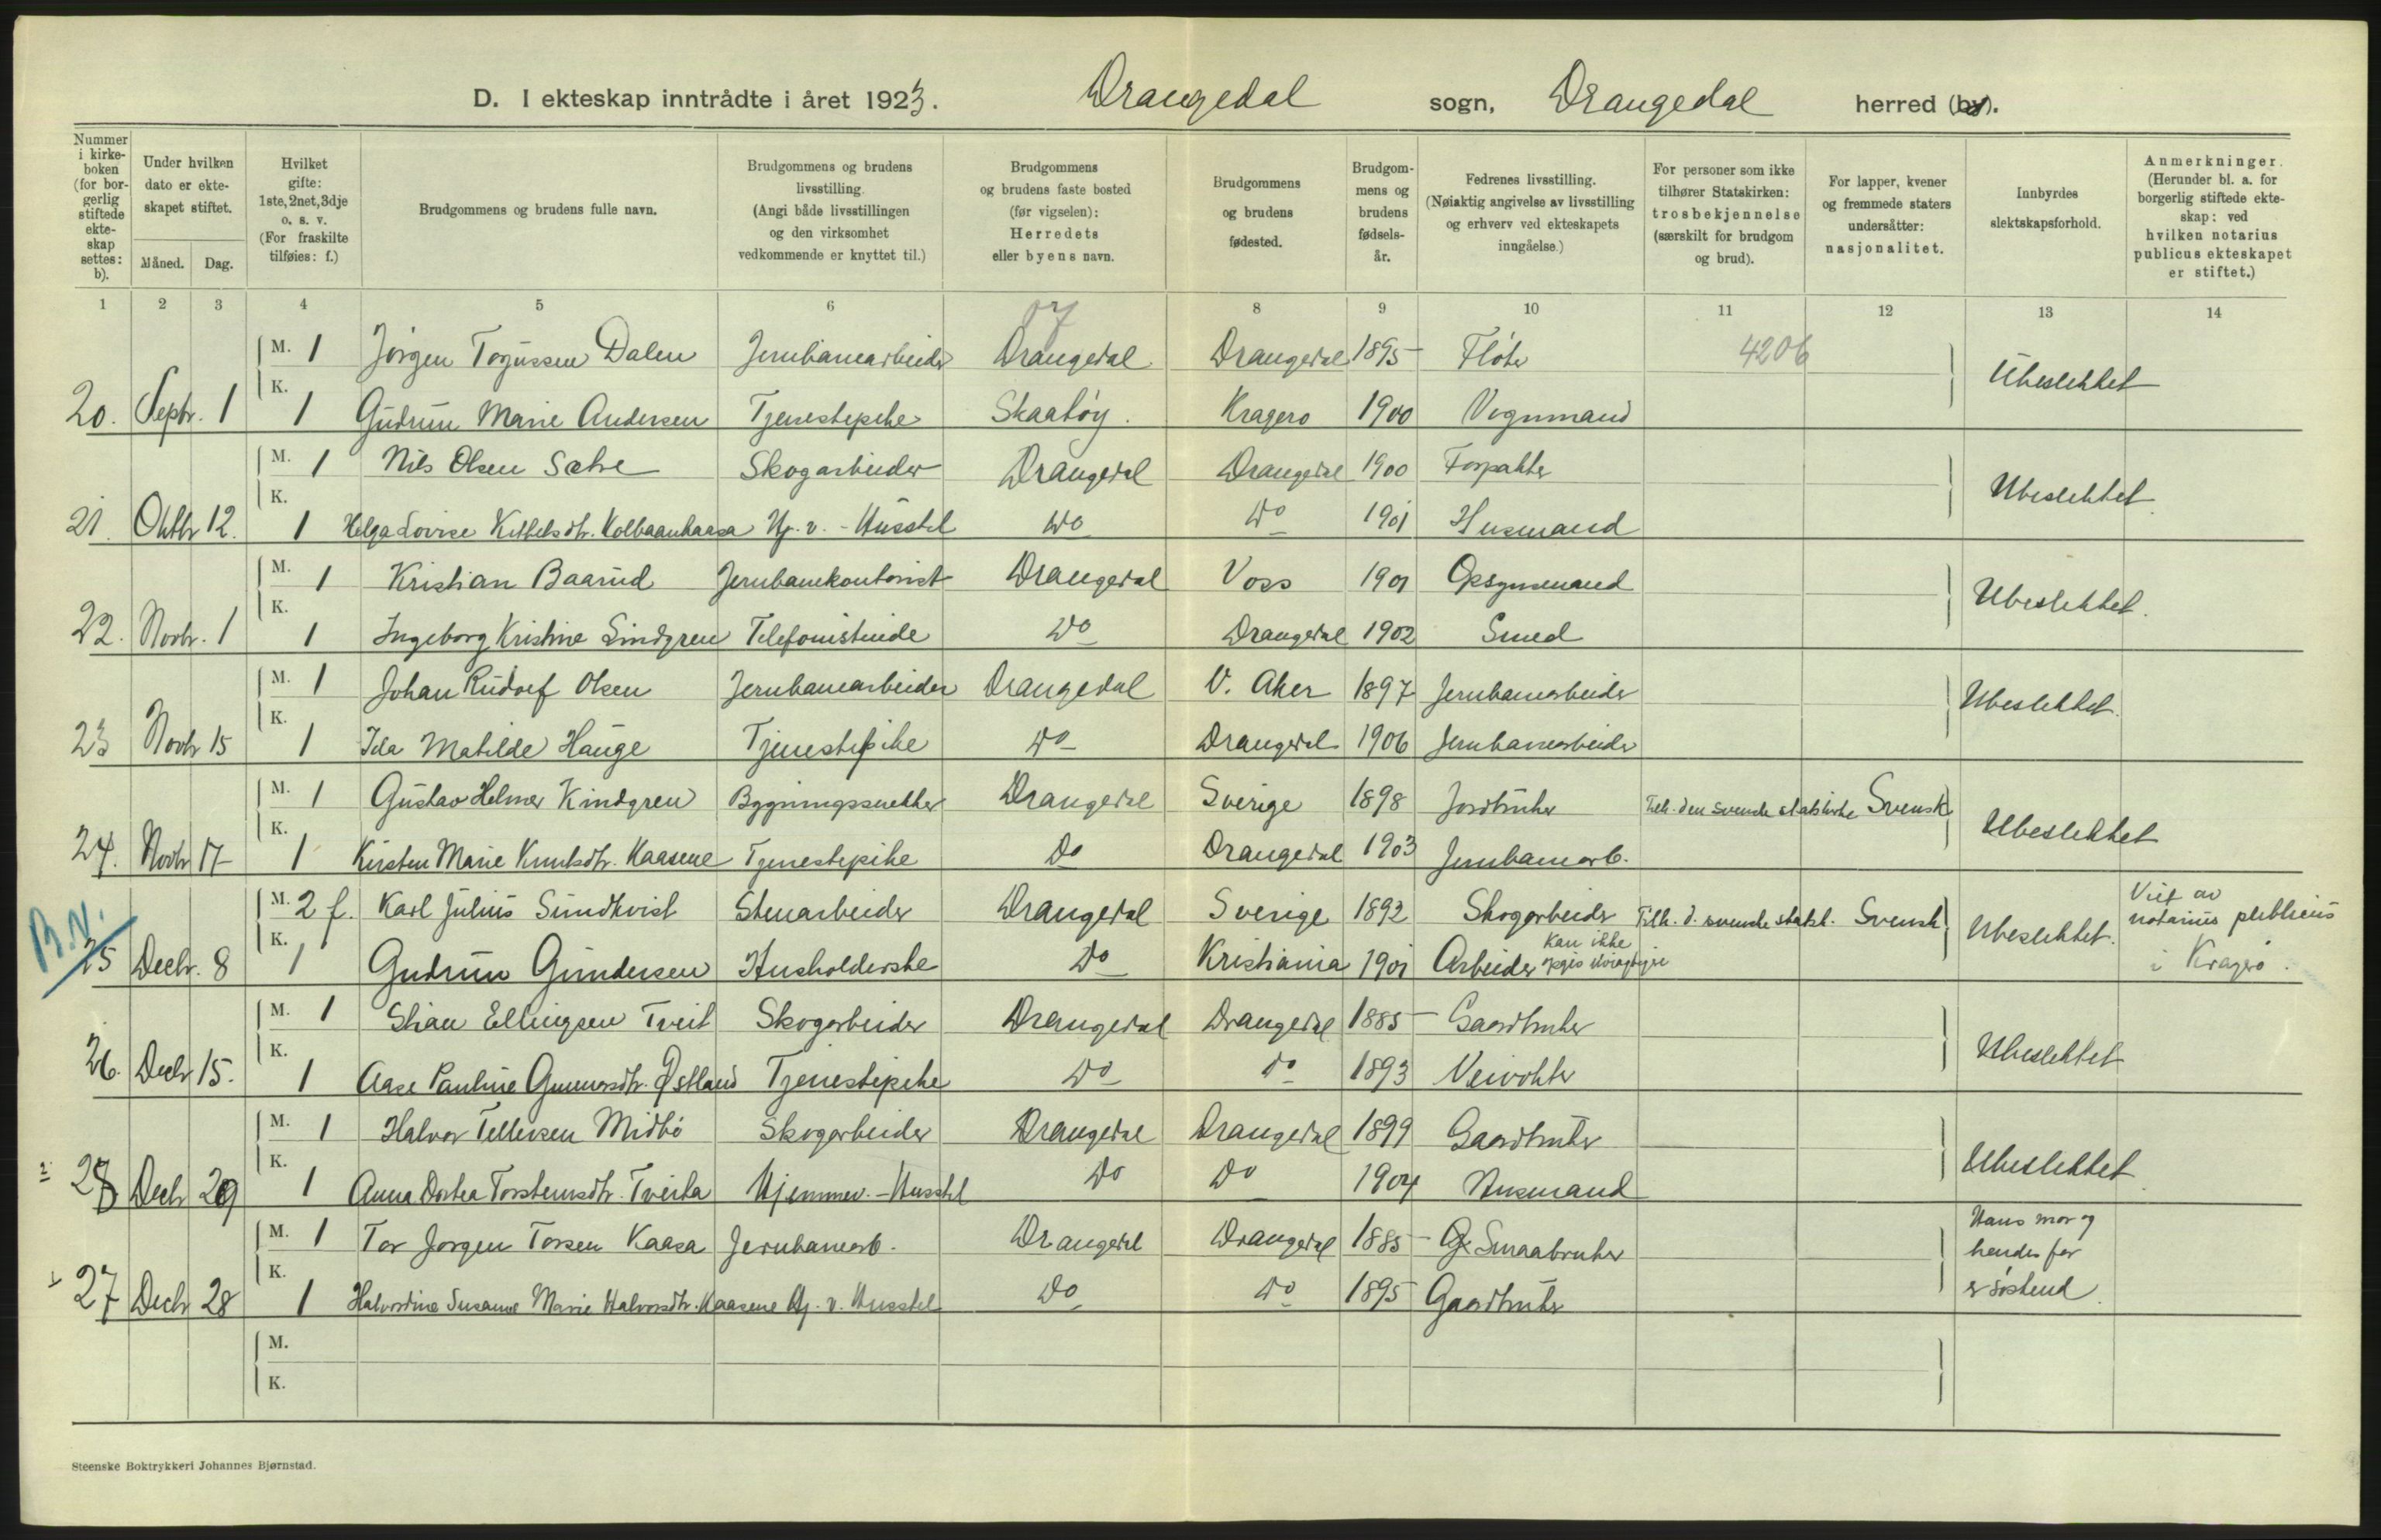 D. I ekteskap inntrådte i året 1923. Drangedal sogn, Drangedal herred (by).
Nummer i kirkeboken (for borgerlig stiftede ekteskap settes: b).
Under hvilken dato er ekteskapet stiftet.
Måned. Dag.
Hvilket gifte: 1ste, 2net, 3dje o. s. v. (For fraskilte tilføies: f.)
Brudgommens og brudens fulle navn.
Brudgommens og brudens livsstilling. (Angi både livsstillingen og den virksomhet vedkommende er knyttet til.)
Brudgommens og brudens faste bosted (før vigselen): Herredets eller byens navn.
Brudgommens og brudens fødested.
Brudgommens og brudens fødselsår.
Fedrenes livsstilling. (Nøiaktig angivelse av livsstilling og erhverv ved ekteskapets inngåelse.)
For personer som ikke tilhører Statskirken: trosbekjennelse (særskilt for brudgom og brud).
For lapper, kvener og fremmede staters undersåtter: nasjonalitet.
Innbyrdes slektskapsforhold.
Anmerkninger. (Herunder bl. a. for borgerlig stiftede ekteskap: ved hvilken notarius publicus ekteskapet er stiftet.)
1 2 3 4 5 6 07 8 9 10 11 12 13 14
M. 1 Jørgen Dalen Jernbanearbeider Drangedal Drangedal 1895 Fløter 4206
20. Septr. 1 K. 1 Gudrun Marie Andersen Tjenestepike Skaatøy. Kragerø 1900 Vognmand Ubeslektet
M. 1 Nils Olsen Sætre Skogarbeider Drangedal Drangedal 1900 Forpakter
21. Oktbr 12. K. 1 Helga Lovise Kittelsdtr. Hj. v. - Husstel Do Do 1901 Husmand Ubeslektet
M. 1 Kristian Baarud Jernbanekontorist Drangedal Voss 1901 Opsynsmand
22. Novbr. 1 K. 1 Ingeborg Kristine Lindgren Telefonistinde Do Drangedal 1902 Smed Ubeslektet.
M. 1 Johan Rudolf Olsen Jernbanearbeider Drangedal V. Aker 1897 Jernbanearbeider
23 Novbr 15 K. 1 Ida Matilde Hauge Tjenestepike Do Drangedal 1906 Jernbanearbeider Ubeslektet.
M. 1 Gustav Helmer Kindgren Bygningssnekker Drangedal Sverige 1898 Jordbruker Tilh. den svenske statskirke Svensk
24. Novbr 17 K. 1 Kirsten Marie Knutsdtr. Kaasene Tjenestepike Do Drangedal 1903 Jernbanearb. Ubeslektet
B.V. M. 2 f. Karl Julius Sundkvist Stenarbeider Drangedal Sverige 1892 Skogarbeider Tilh. d. svenske statsk. Svensk
25 Decbr. 8 K. 1 Gudrun Gundersen Husholderske Do Kristiania 1901 Arbeider kan ikke opgis nøiagtigere Ubeslektet. Viet av notarius publicus i Kragerø.
M. 1 Stian Ellingsen Tveit Skogarbeider Drangedal Drangedal 1885 Gaardbruker
26. Decbr 15. K. 1 Aase Pauline Gunnarsdtr. Østland Tjenestepike Do Do 1893 Veivokter Ubeslektet
M. 1 Halvor Tellefsen Midbø Skogarbeider Drangedal Drangedal 1899 Gaardbruker
28 Decbr 29 K. 1 Anna Dortea Torsteinsdtr. Tveita Hjemmev. - Husstel Do Do 1904 Husmand Ubeslektet
M. 1 Tor Jørgen Torsen Kaasa Jernbanearb. Drangedal Drangedal 1885 Smaabruker
27 Decbr 28 K. 1 Halvordine Susanne Marie Halvorsdtr. Kaasene Hj. v. Husstel Do Do 1895 Gaardbruker Hans mor og hendes far er søskend.
M.
K.
Steenske Boktrykkeri Johannes Bjørnstad.